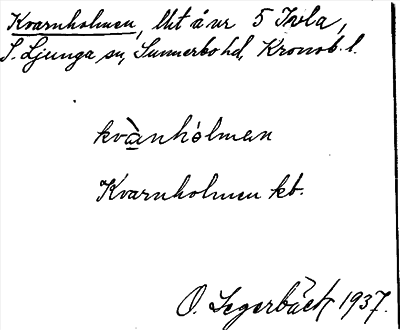 Kvarnholmen, lht å nr 5 Ivla,
S. Ljunga sn, Sunnerbo hd, Kronob. l.
kvànhólman
Kvarnholmen kb.
O. Segerbäck 1937.